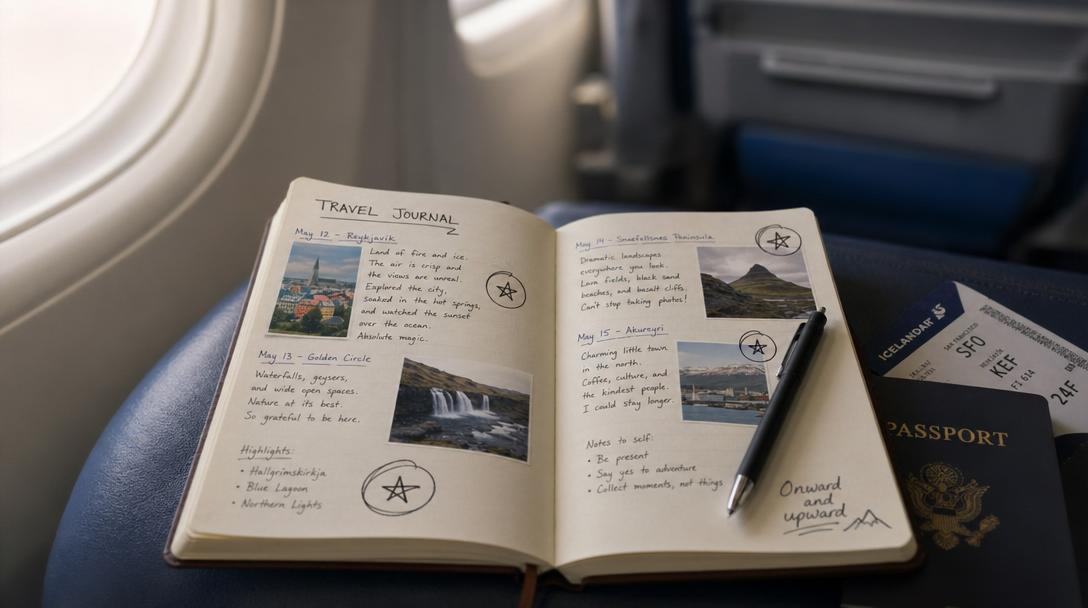 TRAVEL JOURNAL
May 12 - Reykjavik
Land of fire and ice.
The air is crisp and
the views are unreal.
Explored the city,
soaked in the hot springs,
and watched the sunset
over the ocean.
Absolute magic.
May 13 - Golden Circle
Waterfalls, geysers,
and wide open spaces.
Nature at its best.
So grateful to be here.
Highlights:
• Hallgrimskirkja
• Blue Lagoon
• Northern Lights
May 14 - Snaefallsnes Peninsula
Dramatic landscapes
everywhere you look.
Lava fields, black sand
beaches, and basalt cliffs.
Can't stop taking photos!
May 15 - Akureyri
Charming little town
in the north.
Coffee, culture, and
the kindest people.
I could stay longer.
Notes to self:
• Be present
• Say yes to adventure
• Collect moments, not things
Onward
and
upward
ICELANDAIR
SAN FRANCISCO
SFO
KEF
FI 614
24F
PASSPORT